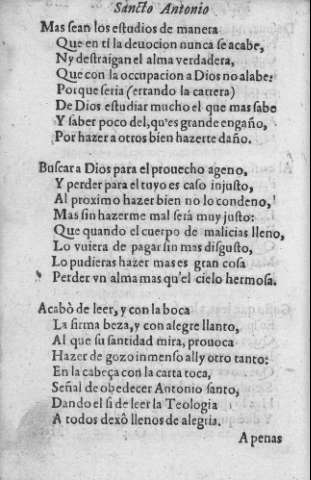 Sancto Antonio
Mas sean los estudios de manera
Que en ti la deuocion nunca se acabe,
Ny destraigan el alma verdadera,
Que con la occupacion a Dios no alabe:
Porque seria (errando la carrera)
De Dios estudiar mucho el que mas sabe
Y saber poco del, qu'es grande engaño,
Por hazer a otros bien hazerte daño.
Buscar a Dios para el prouecho ageno,
Y perder para el tuyo es caso injusto,
Al proximo hazer bien no lo condeno,
Mas sin hazerme mal será muy justo:
Que quando el cuerpo de malicias lleno,
Lo vuiera de pagar sin mas disgusto,
Lo pudieras hazer mas es gran cosa
Perder vn alma mas qu'el cielo hermosa.
Acabò de leer, y con la boca
La firma beza, y con alegre llanto,
Al que su santidad mira, prouoca
Hazer de gozo inmenso all y otro tanto:
En la cabeça con la carta toca,
Señal de obedecer Antonio santo,
Dando el si de leer la Teologia
A todos dexò llenos de alegria.
A penas